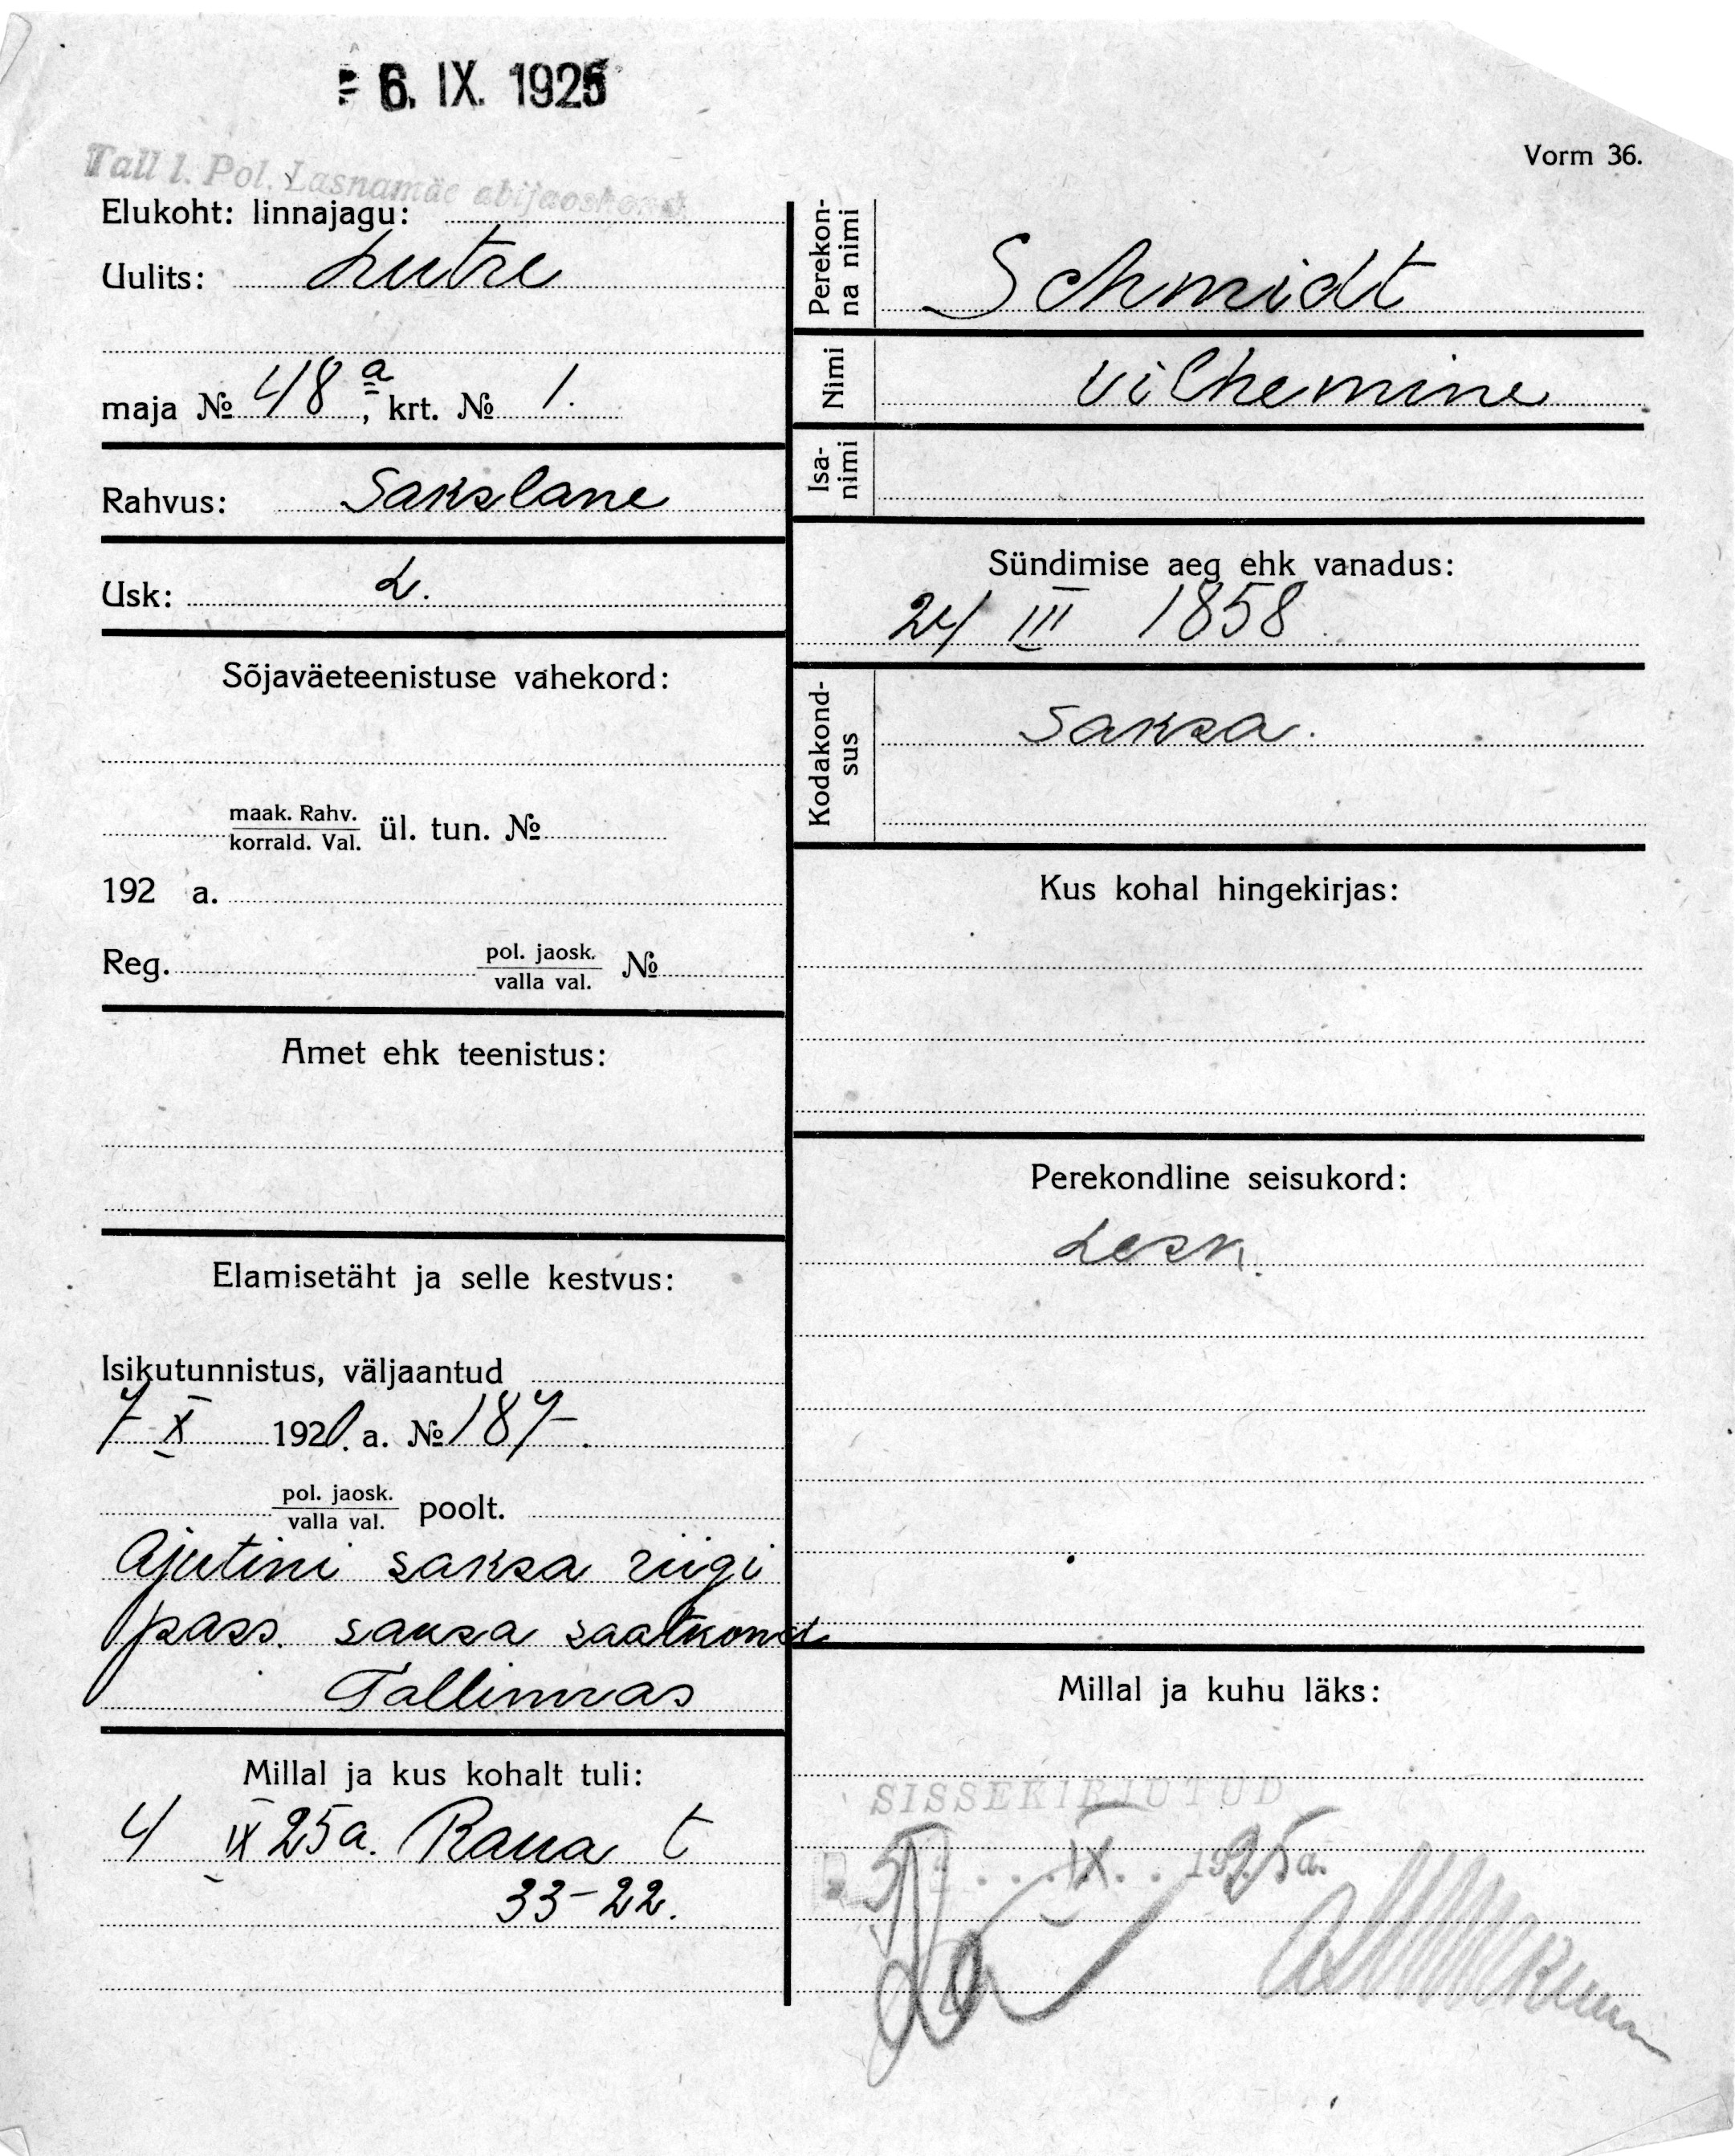 6. IX. 1925
Vorm 36.
Tall 1. Pol. Lasnamäe abijaoskond
Elukoht: linnajagu:
Uulits: Lutre
maja № 48 a, krt. № 1.
Rahvus: Sakslane
Usk: L.
Sõjaväeteenistuse vahekord:
maak. Rahv.
korrald. Val. ül. tun. №
192 a.
Reg. pol. jaosk.
valla val. №
Amet ehk teenistus:
Elamisetäht ja selle kestvus:
Isikutunnistus, väljaantud
7 X 1921. a. № 187.
pol. jaosk.
valla val. poolt.
Ajutini saksa riigi
pass. saksa saatkond
Tallinnas
Millal ja kus kohalt tuli:
4 IX 25 a. Raua t
33-22.
Perekon-
na nimi
Schmidt
Nimi
Vilhemine
Isa-
nimi
Sündimise aeg ehk vanadus:
24 III 1858
Kodakond-
sus
Saksa.
Kus kohal hingekirjas:
Perekondline seisukord:
Lesk.
Millal ja kuhu läks:
SISSEKIRJUTUD
5 . . IX . . 1925 a.